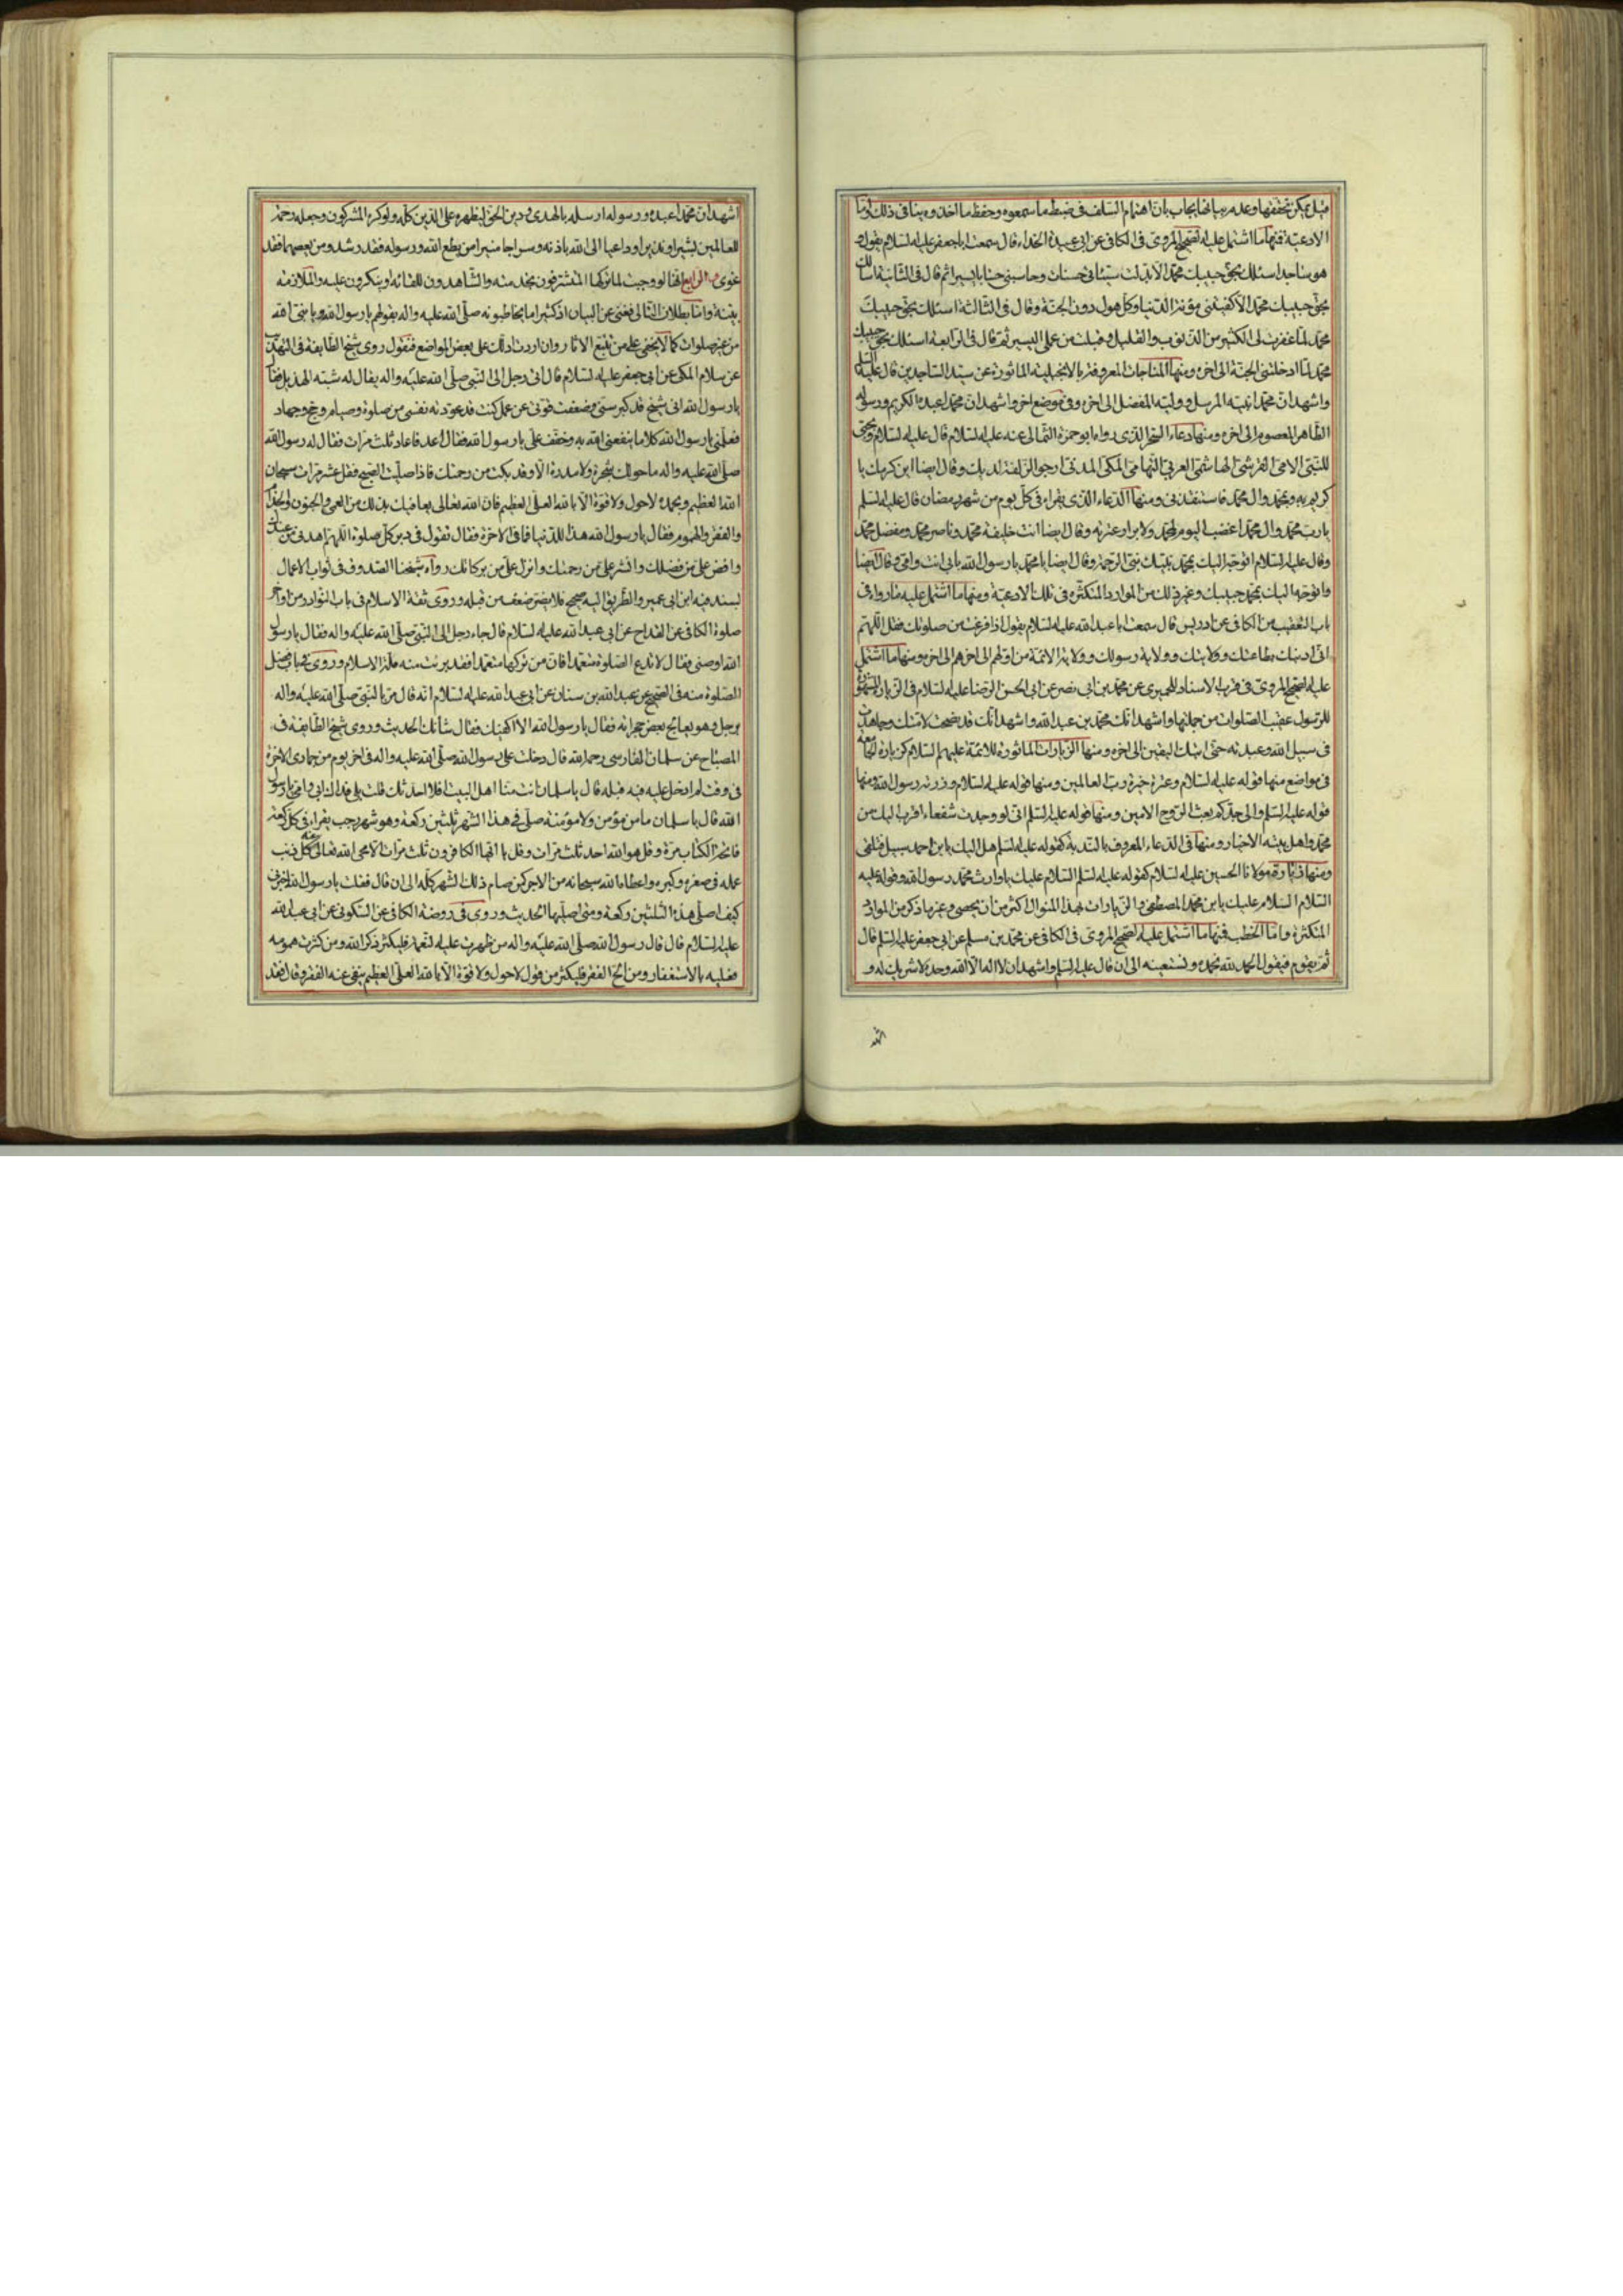 الادعية فمنها ما اشتمل عليه الصحيح المروى فى الكافى عن ابى عبيدة الحذاء قال سمعت اباجعفر عليه السلام يقول و
هو ساجد اسئلك بحق حبيبك محمد الا بدلت سيئاتى حسنات وحاسبنى حسابا يسيرا ثم قال فى الثانية اسالك
بحق حبيبك محمد الا كفيتنى مؤنة الدنيا وكل هول دون الجنة وقال فى الثالثة اسئلك بحق حبيبك
محمد لما غفرت لى الكثير من الذنوب والقليل وقبلت من عملى اليسير ثم قال فى الرابعة اسئلك بحق حبيبك
محمد لما ادخلتنى الجنة الى اخره ومنها المناجات المعروفة بالانجيلية الماثورة عن سيد الساجدين قال عليه السلم
واشهد ان محمدا نبيه المرسل ووليه المفضل الى اخره وفى موضع اخر واشهد ان محمدا عبده الكريم ورسوله
الطاهر المعصوم الى اخره ومنها دعاء السحر الذى رواه ابو حمزة الثمالى عنه عليه السلام قال عليه السلام وبحبى
للنبى الامى القرشى الهاشمى العربى التهامى المكى المدنى ارجو الزلفة لديك وقال ايضا اين كرمك يا
كريم به وبمحمد وال محمد فاستنقذنى ومنها الدعاء الذى يقراء فى كل يوم من شهر رمضان قال عليه السلم
يارب محمد وال محمد اغضب اليوم لمحمد ولابرار عترته وقال ايضا انت خليفة محمد وناصر محمد ومفضل محمد
وقال عليه السلام اتوجه اليك بمحمد نبيك نبى الرحمة وقال ايضا يا محمد يارسول الله بابى انت وامى وقال ايضا
واتوجه اليك بمحمد حبيبك وغير ذلك من الموارد المتكثرة فى تلك الادعية ومنها ما اشتمل عليه ما رواه فى
باب التعقيب من الكافى عن ادريس قال سمعت ابا عبد الله عليه السلام يقول اذا فرغت من صلوتك فقل اللهم
انى ادينك بطاعتك وولايتك وولاية رسولك وولاية الائمة من اولهم الى اخرهم الى اخره ومنها ما اشتمل
عليه الصحيح المروى فى قرب الاسناد للحميرى عن محمد بن ابى نصر عن ابى الحسن الرضا عليه السلام فى الزيارة
للرسول عقيب الصلوات من جملتها واشهد انك محمد بن عبد الله واشهد انك قد نصحت لامتك وجاهدت
فى سبيل الله وعبدته حتى اتيك اليقين الى اخره ومنها الزيارات الماثورة للائمة عليهم السلام كزيارة الجامعة
فى مواضع منها قوله عليه السلام وعترة خيرة رب العالمين ومنها قوله عليه السلام وذرية رسول الله ومنها
قوله عليه السلم والى جدكم بعث الروح الامين ومنها قوله عليه السلم انى لو وجدت شفعاء اقرب اليك من
محمد واهل بيته الاخيار ومنها فى الدعاء المعروف بالندبة كقوله عليه السلم هل اليك يابن احمد سبيل فتلقى
ومنها فى زيارة مولانا الحسين عليه السلام كقوله عليه السلم السلام عليك ياوارث محمد رسول الله وقوله عليه
السلام السلام عليك يابن محمد المصطفى والزيارات بهذا المنوال اكثر من ان يحصى وغير ما ذكر من الموارد
المتكثرة واما الخطب فمنها ما اشتمل عليه الصحيح المروى فى الكافى عن محمد بن مسلم عن ابى جعفر عليه السلم قال
ثم يقوم فيقول الحمد لله نحمده ونستعينه الى ان قال عليه السلم واشهد ان لا اله الا الله وحده لا شريك له و
اشهد ان محمدا عبده ورسوله ارسله بالهدى ودين الحق ليظهره على الدين كله ولو كره المشركون وجعله رحمة
للعالمين بشيرا ونذيرا وداعيا الى الله باذنه وسراجا منيرا من يطع الله ورسوله فقد رشد ومن يعصهما فقد
غوى الرابع انها لو وجبت لما تركها المتشرفون بخدمته والشاهدون للقائه او ينكرون عليه والملازمة
بينة واما بطلان التالى فغنى عن البيان اذ كثيرا ما يخاطبونه صلى الله عليه واله بقولهم يارسول الله ويا نبى الله
من غير صلوات كما لا يخفى على من تتبع الاثار وان اردت ادلك على بعض المواضع فنقول روى شيخ الطايفة فى التهذيب
عن سلام المكى عن ابى جعفر عليه السلام قال اتى رجل الى النبى صلى الله عليه واله يقال له شيبة الهذيل فقال
يارسول الله انى شيخ قد كبر سنى وضعفت قوتى عن عمل كنت قد عودته نفسى من صلوة وصيام وحج وجهاد
فعلمنى يارسول الله كلاما ينفعنى الله به وخفف على يارسول الله فقال اعد فاعاد ثلث مرات فقال له رسول الله
صلى الله عليه واله ما حولك شجرة ولا مدرة الا وقد بكت من رحمتك فاذا صليت الصبح فقل عشر مرات سبحان
الله العظيم وبحمده لاحول ولا قوة الا بالله العلى العظيم فان الله تعالى يعافيك بذلك من العمى والجنون والجذام
والفقر والهموم فقال يارسول الله هذا للدنيا فما فى الاخرة فقال تقول فى دبر كل صلوة اللهم اهدنى من عندك
وافض على من فضلك وانشر على من رحمتك وانزل على من بركاتك رواه شيخنا الصدوف فى ثواب الاعمال
بسند فيه ابن ابى عمير والطريق اليه صحيح فلا يضر ضعف من قبله وروى ثقة الاسلام فى باب النوادر من اواخر
صلوة الكافى عن القداح عن ابى عبد الله عليه السلام قال جاء رجل الى النبى صلى الله عليه واله فقال يارسول
الله اوصنى فقال لا تدع الصلوة متعمدا فان من تركها متعمدا فقد برئت منه ملة الاسلام وروى فى باب فضل
الصلوة منه فى الصحيح عن عبد الله بن سنان عن ابى عبد الله عليه السلام انه قال مر بالنبى صلى الله عليه واله
رجل وهو يعالج بعض حجراته فقال يارسول الله الا اكفيك فقال شانك الحديث وروى شيخ الطايفة فى
المصباح عن سلمان الفارسى رحمه الله قال دخلت على رسول الله صلى الله عليه واله فى اخر يوم من جمادى الاخرة
فى وقت لم ادخل عليه فيه قبله قال ياسلمان انت منا اهل البيت افلا احدثك قلت بلى فداك ابى وامى يارسول
الله قال ياسلمان ما من مؤمن ولا مؤمنة صلى فى هذا الشهر ثلثين ركعة وهو شهر رجب يقراء فى كل ركعة
فاتحة الكتاب مرة وقل هو الله احد ثلث مرات وقل يا ايها الكافرون ثلث مرات الا محى الله تعالى عنه كل ذنب
عمله فى صغره وكبره واعطاه الله سبحانه من الاجر كمن صام ذلك الشهر كله الى ان قال فقلت يارسول الله اخبرنى
كيف اصلى هذه الثلثين ركعة ومتى اصليها الحديث وروى فى روضة الكافى عن السكونى عن ابى عبد الله
عليه السلام قال قال رسول الله صلى الله عليه واله من ظهرت عليه النعمة فليكثر ذكر الله ومن كثرت همومه
فعليه بالاستغفار ومن الح الفقر فليكثر من قول لاحول ولا قوة الا بالله العلى العظيم ينفى عنه الفقر وقال فقد